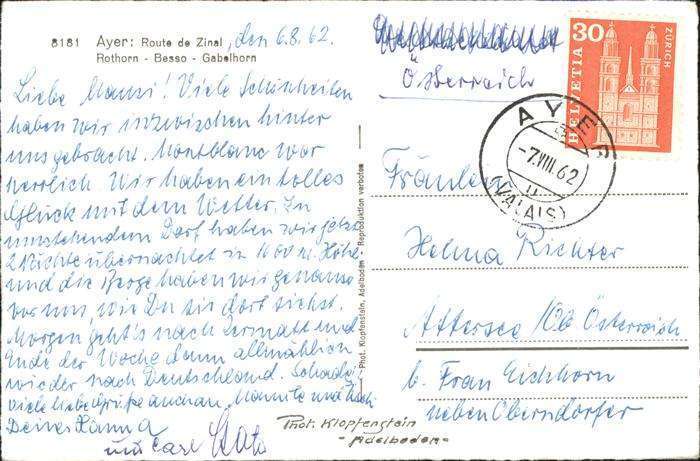 8181 Ayer: Route de Zinal, den 6.8.62.
Rothorn - Besso - Gabelhorn
Liebe Mausi! Viele Schönheiten
haben wir inzwischen hinter
uns gebracht. Montblanc war
herrlich. Wir haben ein tolles
Glück mit dem Wetter. In
umstehendem Dorf haben wir jetzt
2 Nächte übernachtet in 1600 m. Höhe
und die Berge haben wir genauso
vor uns, wie Du sie dort siehst.
Morgen geht's nach Zermatt und
Ende der Woche dann allmählich
wieder nach Deutschland. Schade.
viele liebe Grüße auch an und
Deines
und
Phot. Klopfenstein, Adelboden. Reproduktion verboten
Phot. Klopfenstein
-Adelboden-
Österreich
30
HELVETIA
ZÜRICH
AYER
-7.VIII.62
(VALAIS)
Fräulein
Helma Richter
Attersee Österreich
b. Frau Eichhorn
neben Oberndorfer